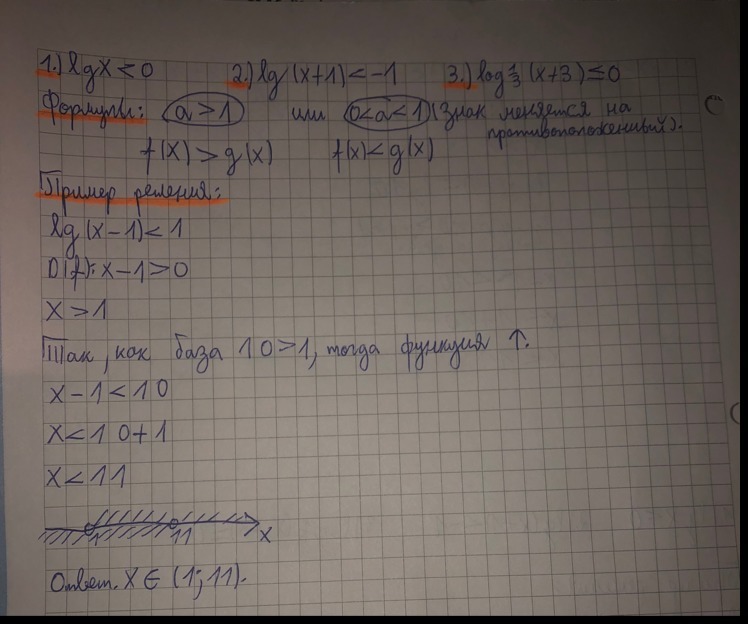 1.) lg x < 0 2.) lg (x+1) < -1 3.) log 1/3 (x+3) ≤ 0
Формулы: a > 1 или 0 < a < 1 (Знак меняется на
противоположенный).
f(x) > g(x) f(x) < g(x)
Пример решения:
lg (x-1) < 1
D(f): x-1 > 0
x > 1
Так, как база 10 > 1, тогда функция ↑.
x-1 < 10
x < 10+1
x < 11
1 11 x
Ответ. x ∈ (1; 11).